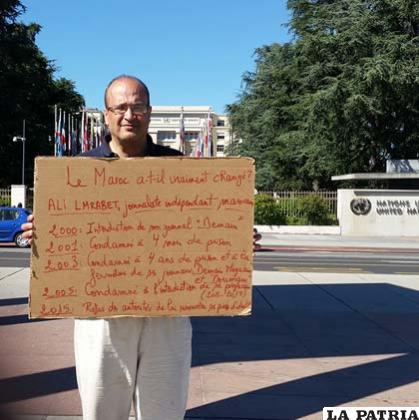 Le Maroc a-t-il vraiment changé?
ALI LMRABET, journaliste indépendant marocain
2000: Interdiction de mon journal "Demain"
2001: Condamné à 4 mois de prison
2003: Condamné à 4 ans de prison et à la
de ses journaux Demain Magazine
et Doumane
2005: Condamné à l'interdiction de
2015: Refus des autorités de lui
NATIONS
UNITED
LA PATRIA